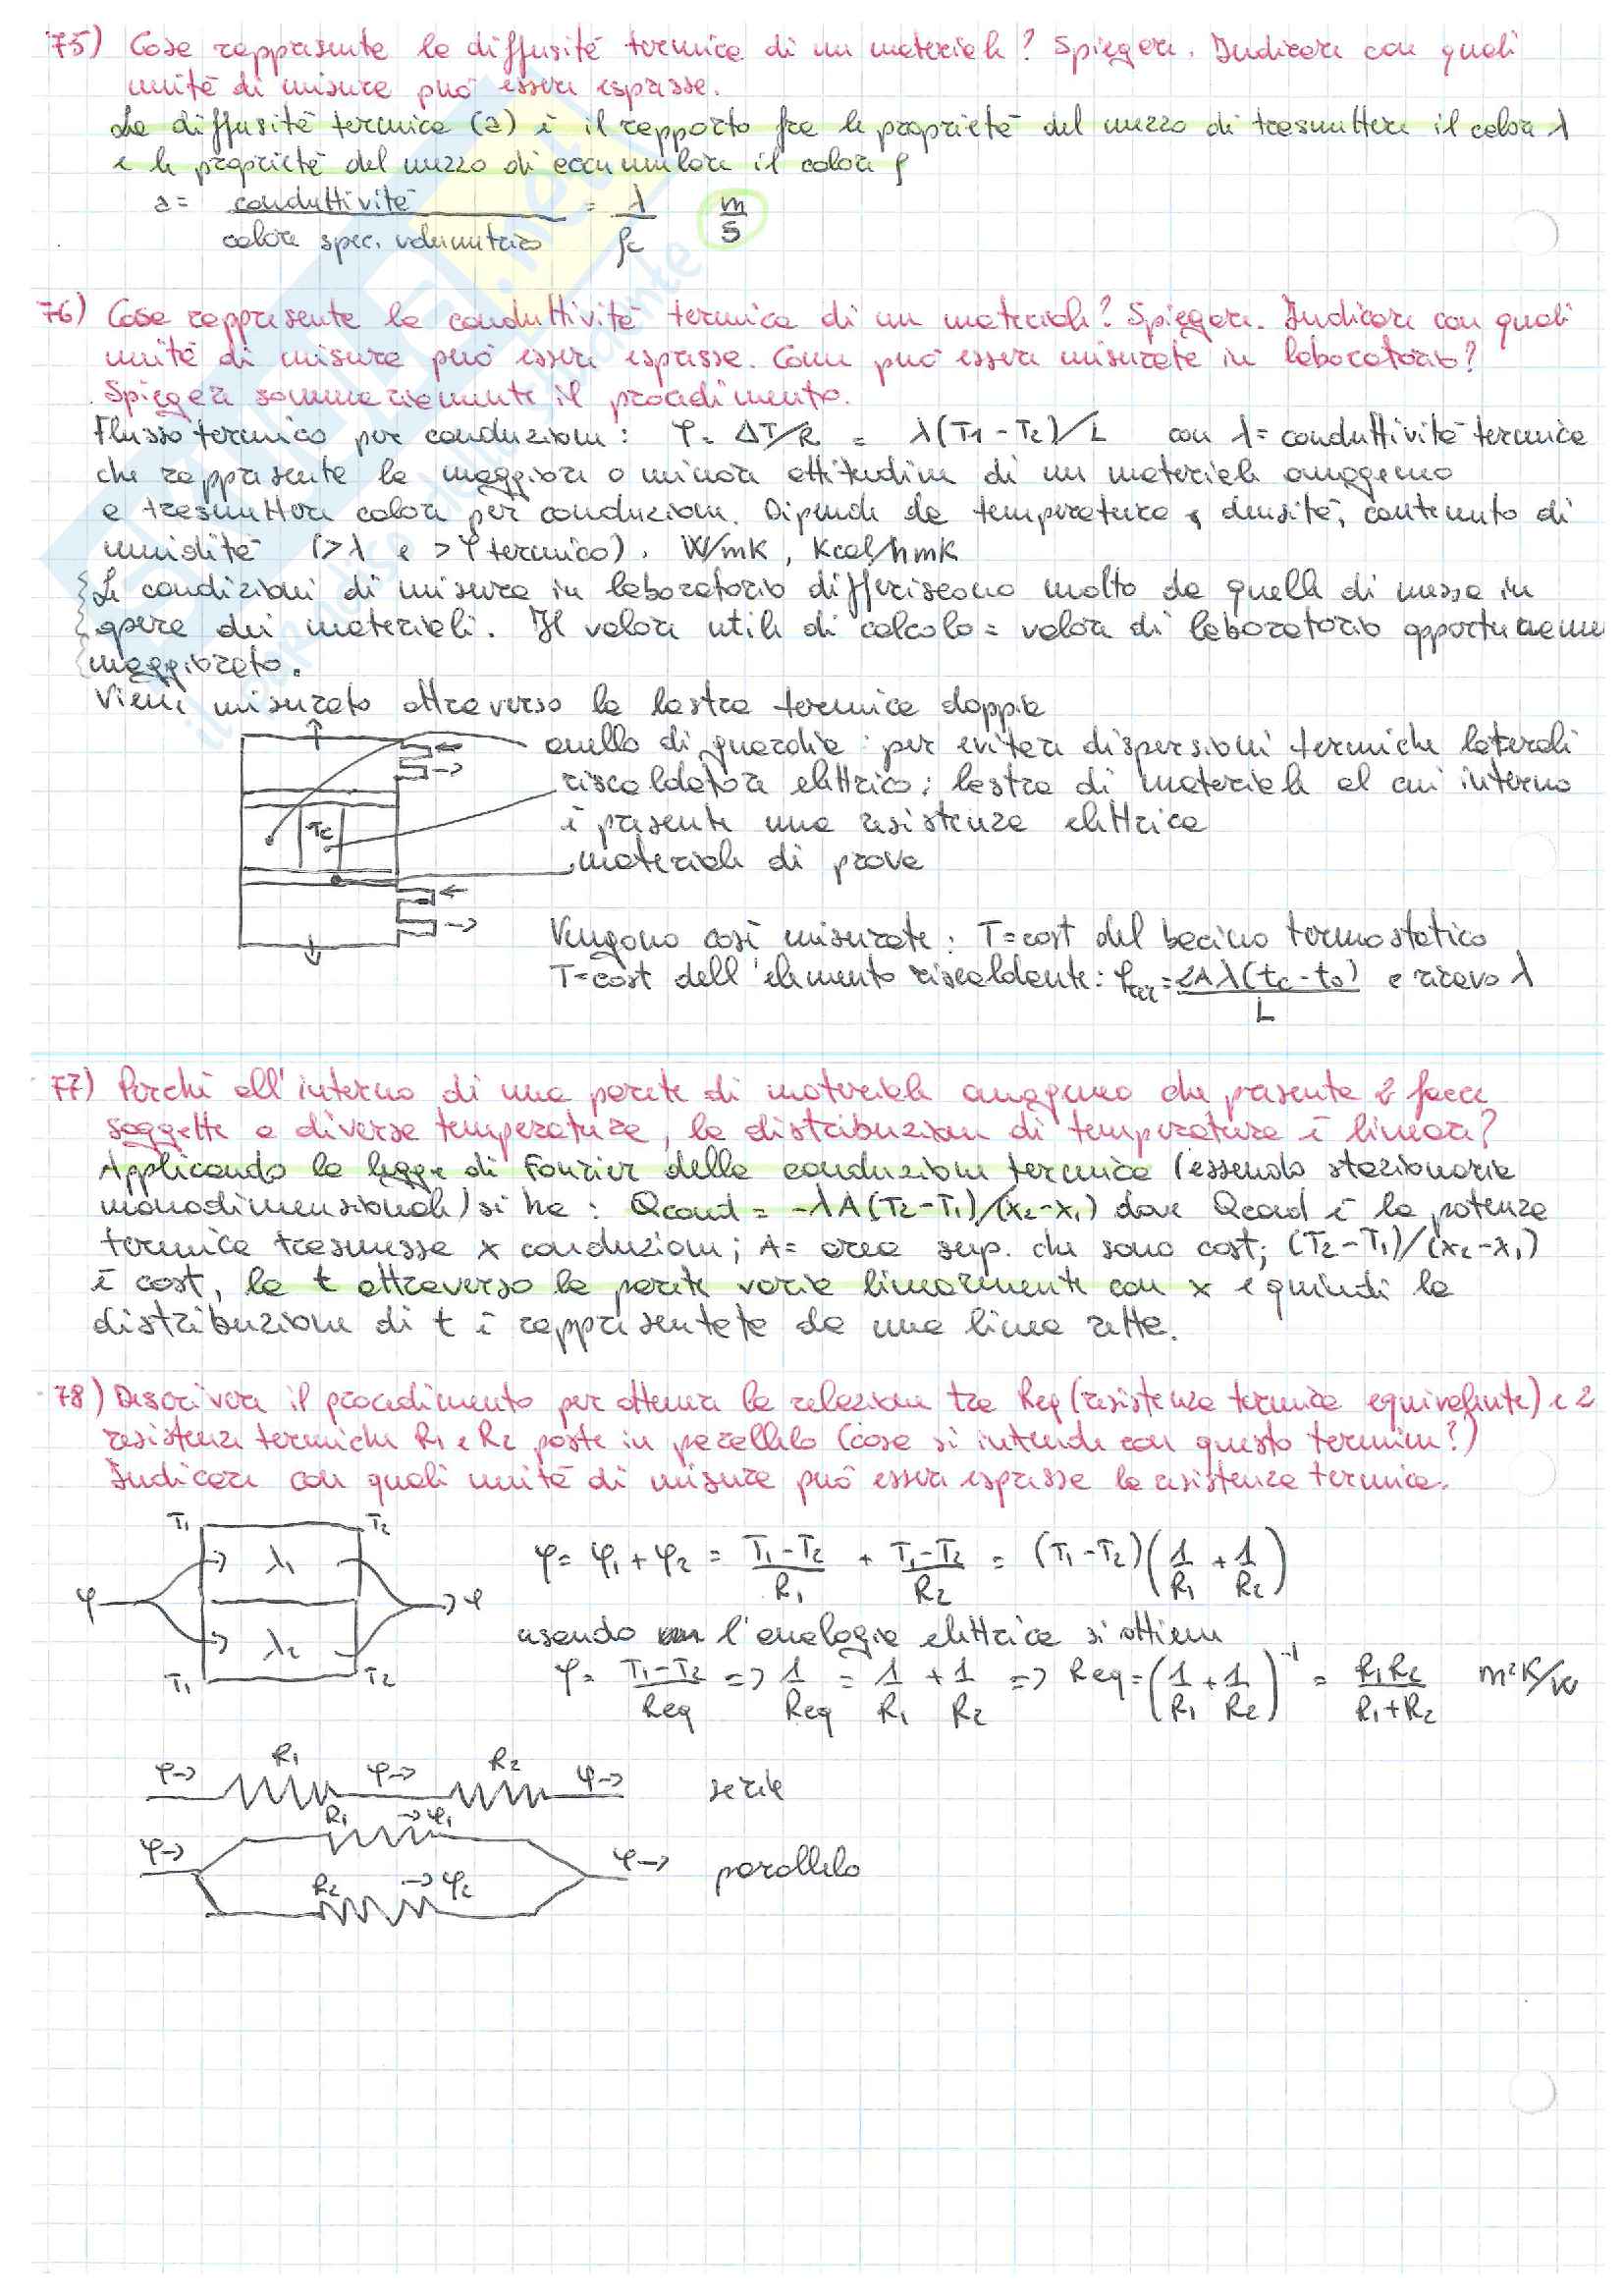 75) Cosa rappresenta la diffusità termica di un materiale? Spiegare. Indicare con quali
unità di misura può essere espressa.
La diffusità termica (a) è il rapporto fra la proprietà del mezzo di trasmettere il calore λ
e la proprietà del mezzo di accumulare il calore ρ
a = conduttività / calore spec. volumetrico = λ / ρc m/s
76) Cosa rappresenta la conduttività termica di un materiale? Spiegare. Indicare con quali
unità di misura può essere espressa. Come può essere misurata in laboratorio?
Spiegare sommariamente il procedimento.
Flusso termico per conduzione: φ = ΔT/R = λ(T1-T2)/L con λ = conduttività termica
che rappresenta la maggiore o minore attitudine di un materiale omogeneo
a trasmettere calore per conduzione. Dipende da temperatura, densità, contenuto di
umidità (>λ e >φ termico). W/mK, Kcal/hmK
Le condizioni di misura in laboratorio differiscono molto da quelle di messa in
opera dei materiali. Il valore utile di calcolo = valore di laboratorio opportuname
maggiorato.
Viene misurato attraverso la lastra termica doppia
anello di guardia: per evitare dispersioni termiche laterali
riscaldatore elettrico: lastra di materiale al cui interno
è presente una resistenza elettrica
Tc
materiale di prova
Vengono così misurate: T=cost del bacino termostatico
T=cost dell'elemento riscaldante: φ = 2Aλ(tc-to) / L e ricavo λ
77) Perchè all'interno di una parete di materiale omogeneo che presenta 2 facce
soggette a diversa temperatura, la distribuzione di temperatura è lineare?
Applicando la legge di Fourier della conduzione termica (essendo stazionaria
monodimensionale) si ha: Qcond = -λA(T2-T1)/(x2-x1) dove Qcond è la potenza
termica trasmessa x conduzione; A = area sup. che sono cost; (T2-T1)/(x2-x1)
è cost, la t attraverso la parete varia linearmente con x e quindi la
distribuzione di t è rappresentata da una linea retta.
78) Descrivere il procedimento per ottenere la relazione tra Req (resistenza termica equivalente) e 2
resistenze termiche R1 e R2 poste in parallelo (cosa si intende con questo termine?)
Indicare con quali unità di misura può essere espressa la resistenza termica.
T1 T2
λ1
φ → φ
λ2
T1 T2
φ = φ1 + φ2 = T1-T2 / R1 + T1-T2 / R2 = (T1-T2)(1/R1 + 1/R2)
usando l'analogia elettrica si ottiene
φ = T1-T2 / Req => 1/Req = 1/R1 + 1/R2 => Req = (1/R1 + 1/R2)^-1 = R1R2 / R1+R2 m²K/W
φ→ R1 φ→ R2 φ→ serie
R1 →φ1
φ→ φ→ parallelo
R2 →φ2